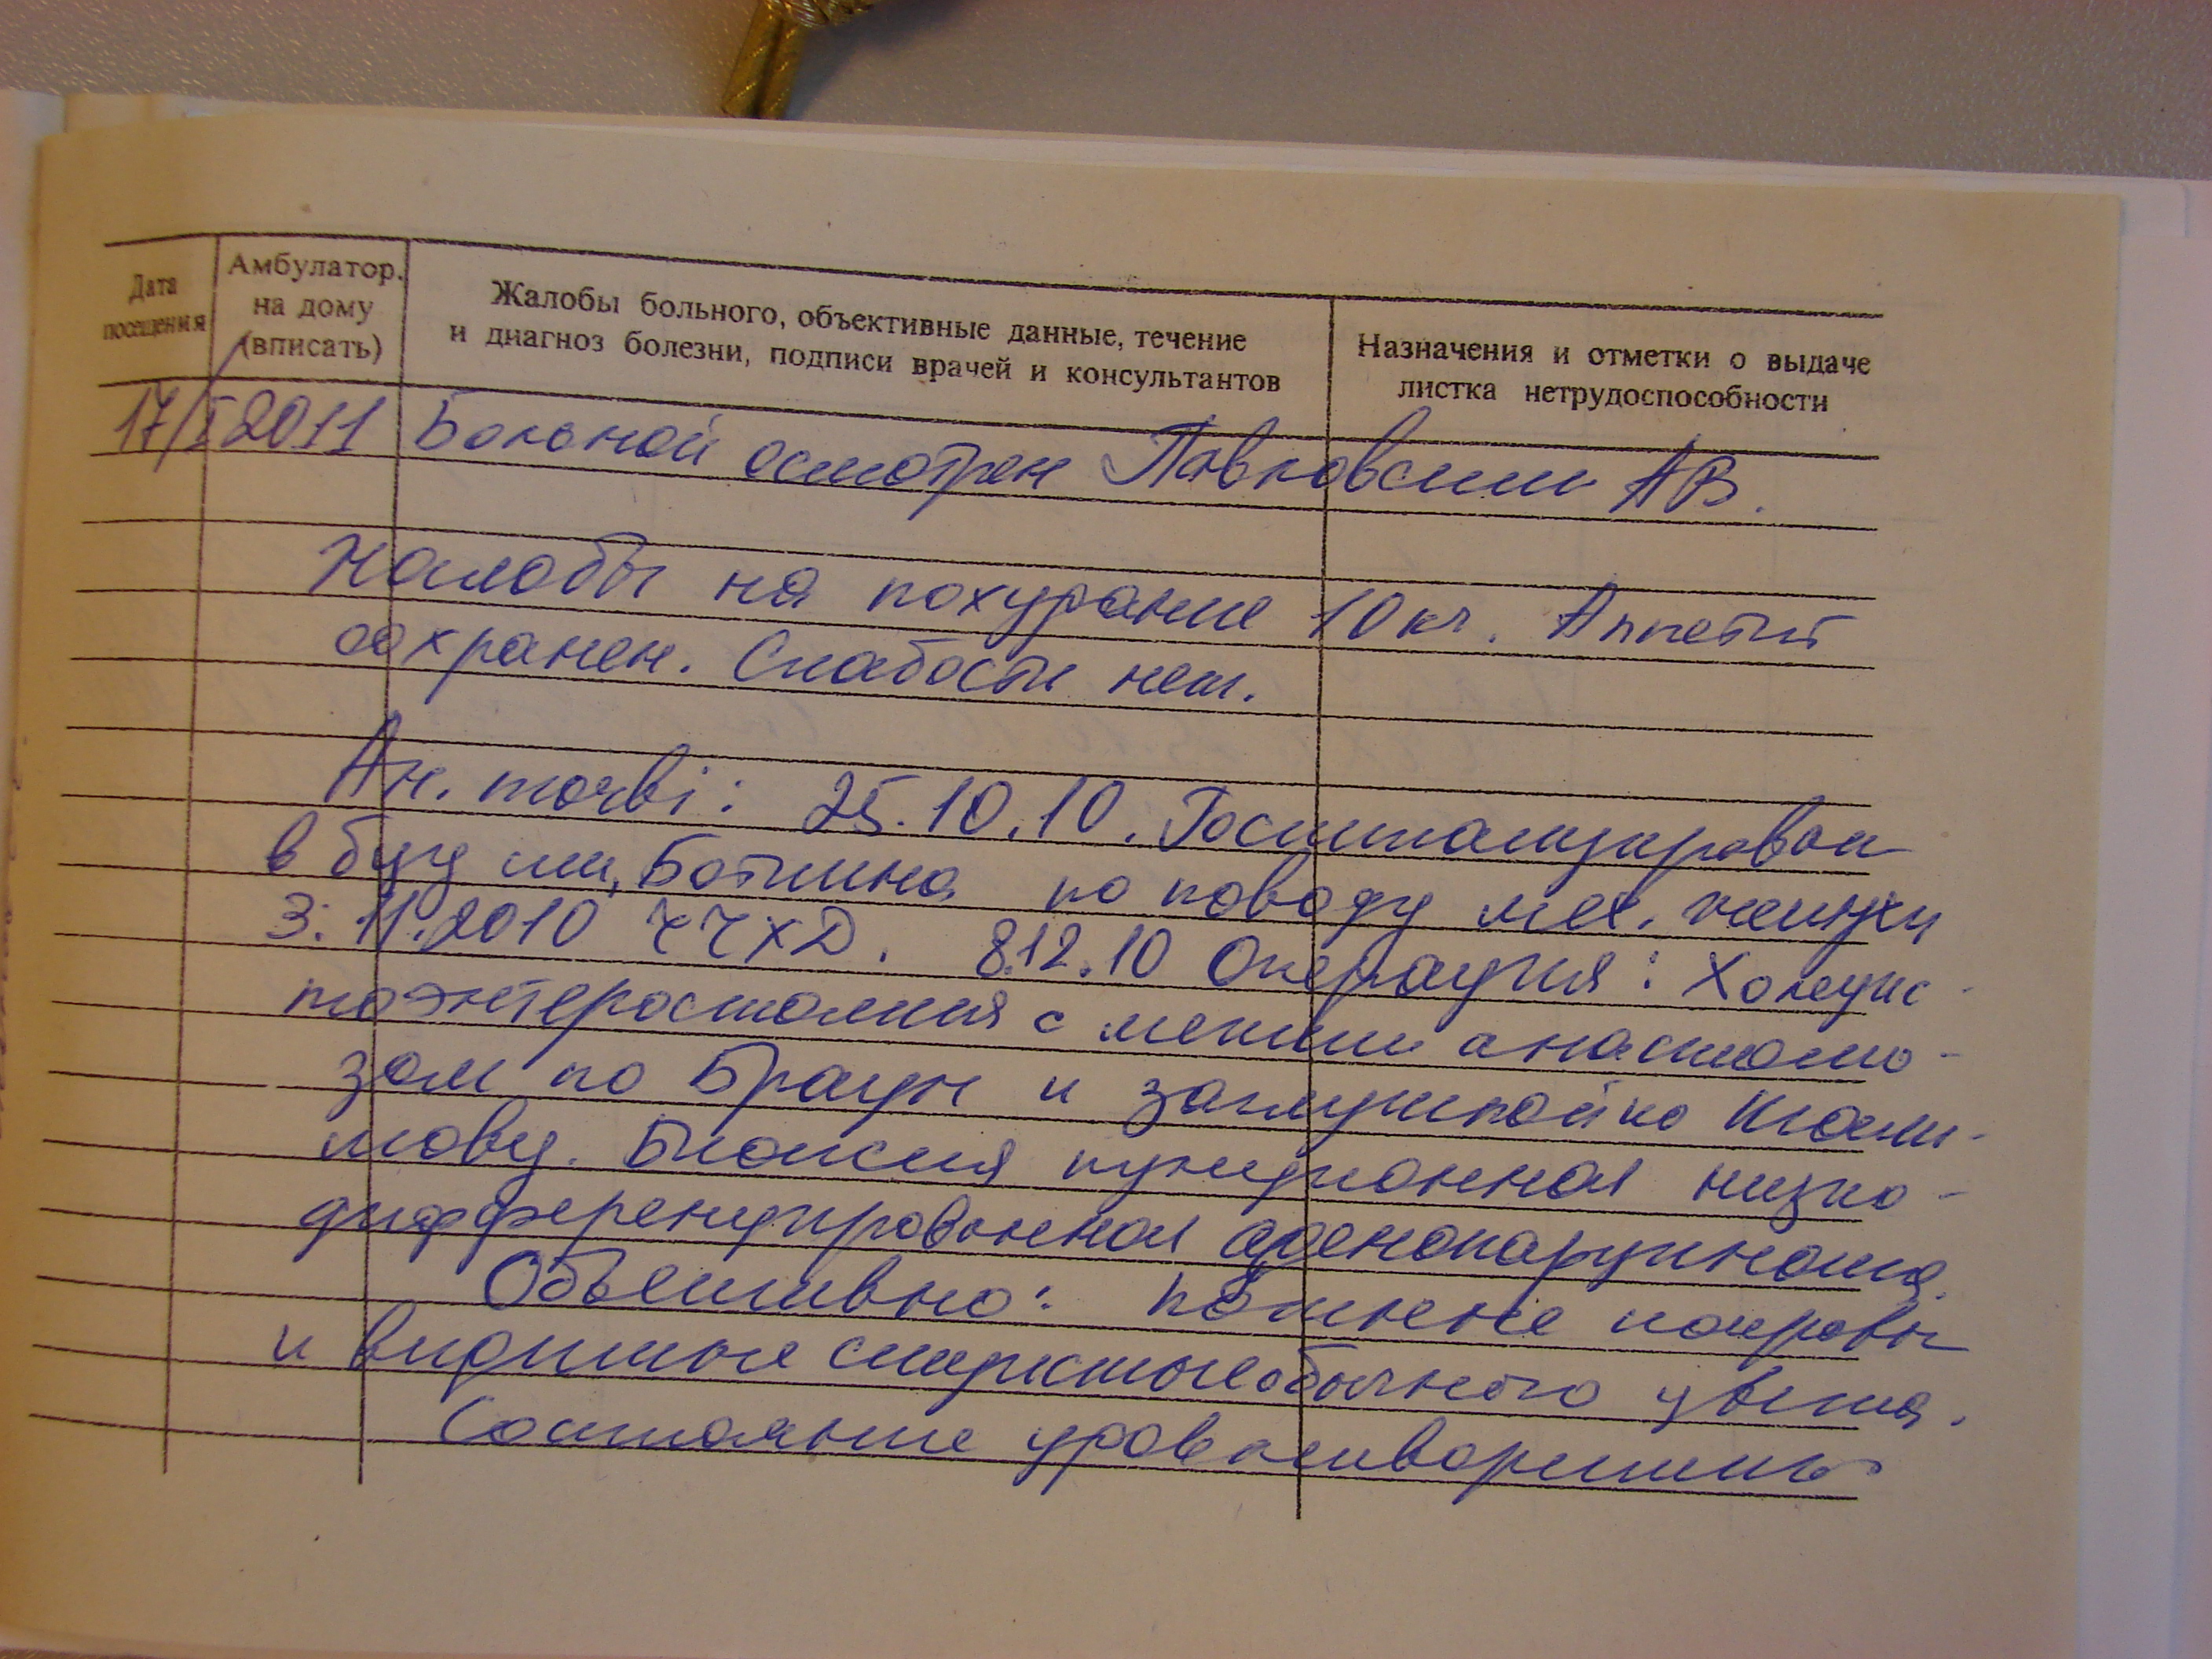 Дата посещения
Амбулатор. на дому (вписать)
Жалобы больного, объективные данные, течение
и диагноз болезни, подписи врачей и консультантов
Назначения и отметки о выдаче
листка нетрудоспособности
17/I 2011 Больной осмотрен Павловским АВ.
Жалобы на похудание 10 кг. Аппетит
сохранен. Слабости нет.
Ан. morbi: 25.10.10. Госпитализирован
в бцу им. Боткина по поводу мех. желтухи
3.11.2010 ЧЧХД. 8.12.10 Операция: Холецис-
тоэнтеростомия с межкиш анастомо-
зом по Брауну и заглушкой по Шали-
мову. Биопсия пункционная низко-
дифференцированная аденокарцинома.
Объективно: кожные покровы
и видимые слизистые обычного цвета.
Состояние удовлетворительно